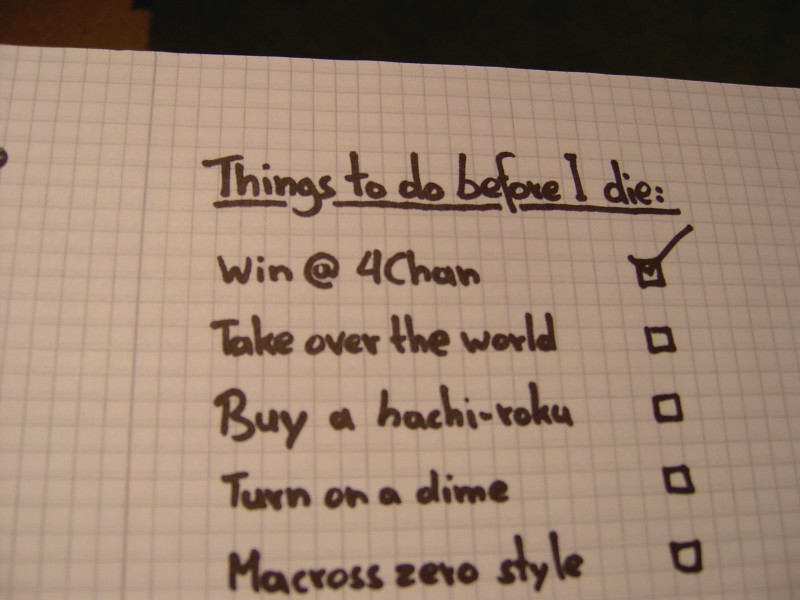 Things to do before I die:
Win @ 4Chan
Take over the world
Buy a hachi-roku
Turn on a dime
Macross zero style